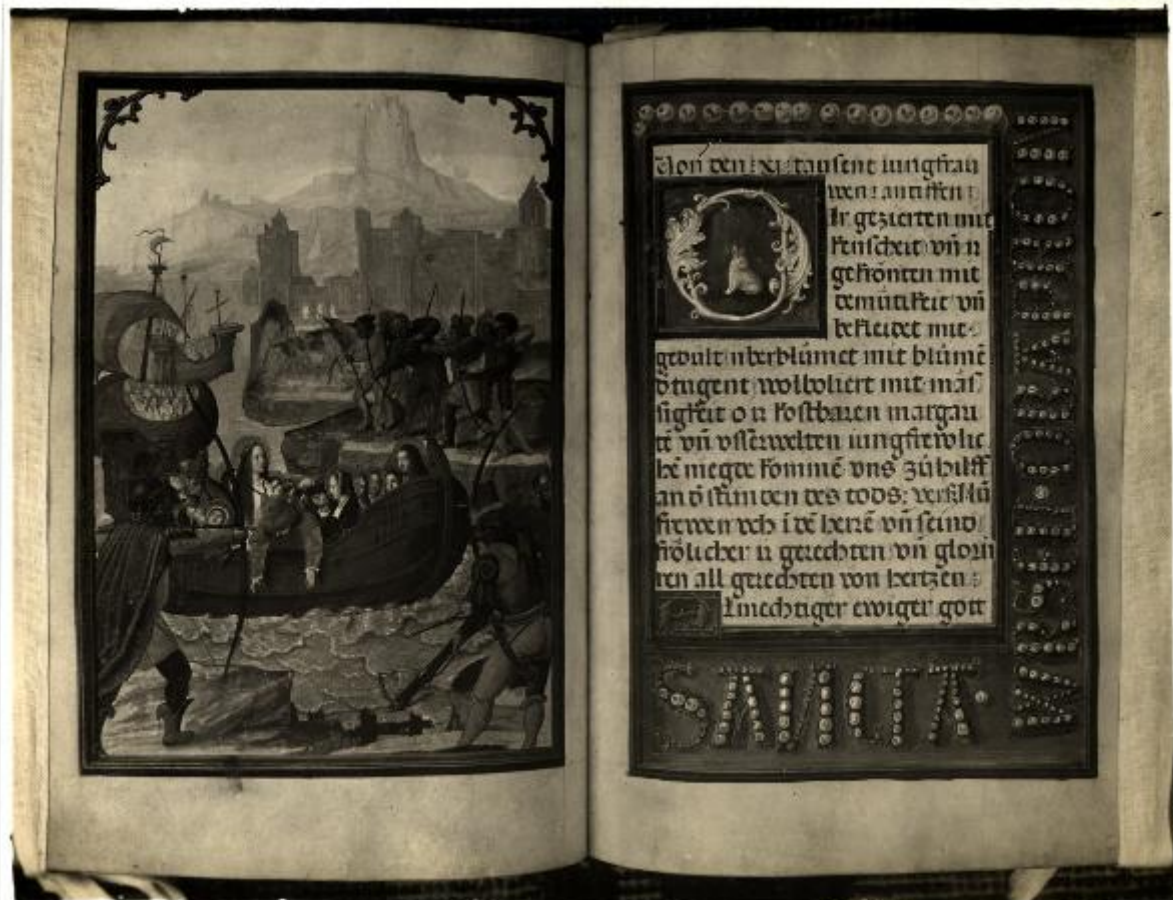 Von den : xj : tausent iungfrau
wen : antiffen :
Ir gezierten mit
keuscheit vn̄ u
gekrönten mit
demütikeit vn̄
bekleidet mit
gedult uberblümet mit blümē
d tugent wolpoliert mit mäs
sigkeit o ir kostbaren margari
tē vn̄ vsserwelten iungfrewlic
hē megde kommē vns zůhilff
an d stünden des tods :
frewen vch ī dē herrē vn̄ seind
frölicher ir gerechten vn̄ glorii
ren all gerechten von hertzen :
lmechtiger ewiger gott
SANCTA